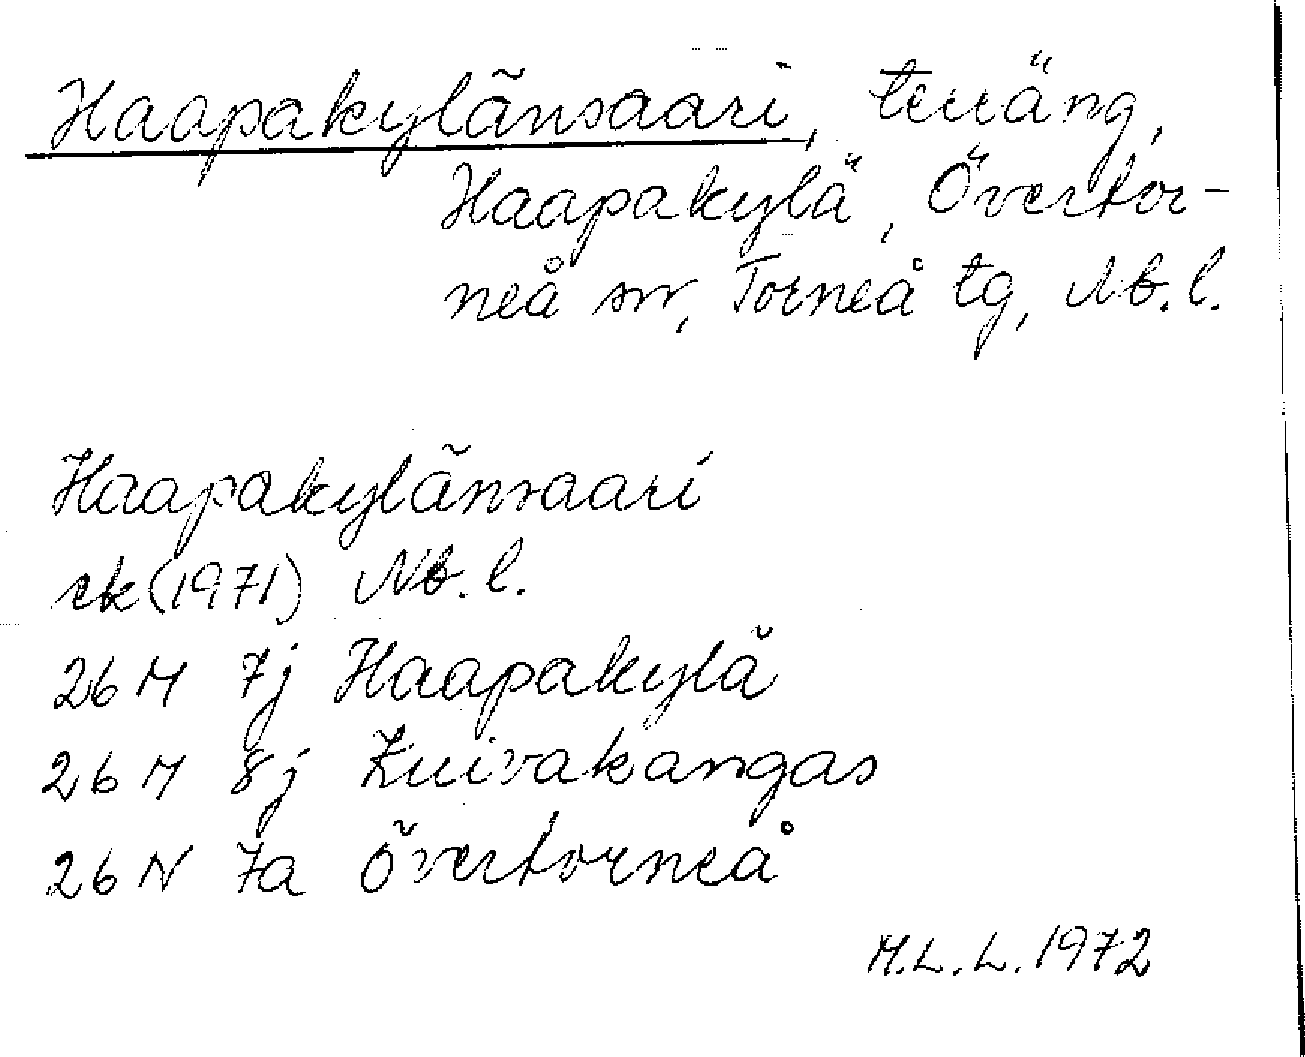 Haapakylänsaari, terräng,
Haapakylä, Övertor-
neå sn, Torneå tg, Nb. l.
Haapakylänsaari
ek (1971) Nb. l.
26 M 7j Haapakylä
26 M 8j Kuivakangas
26 N 7a Övertorneå
M.L.L. 1972